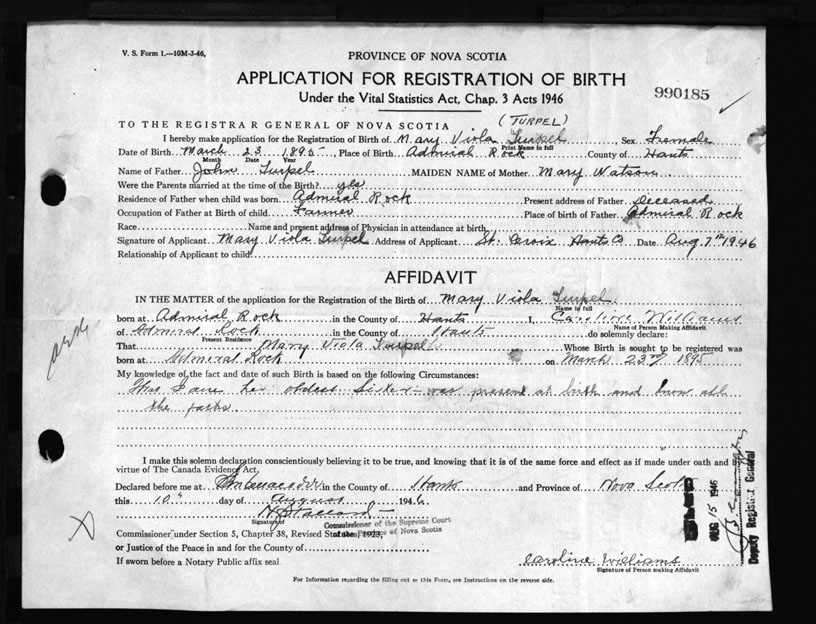 V. S. Form 1.—10M-3-46,
PROVINCE OF NOVA SCOTIA
APPLICATION FOR REGISTRATION OF BIRTH
990185
Under the Vital Statistics Act, Chap. 3 Acts 1946
(TURPEL)
TO THE REGISTRAR GENERAL OF NOVA SCOTIA
I hereby make application for the Registration of Birth of Mary Viola Turpel, Sex Female
Print Name in full
Date of Birth March 23 1895, Place of Birth Admiral Rock County of Hants
Month Date Year
Name of Father John Turpel MAIDEN NAME of Mother Mary Watson
Were the Parents married at the time of the Birth? yes
Residence of Father when child was born Admiral Rock Present address of Father deceased
Occupation of Father at Birth of child Farmer Place of birth of Father Admiral Rock
Race Name and present address of Physician in attendance at birth
Signature of Applicant Mary Viola Turpel Address of Applicant St. Croix Hants Co Date Aug 7th 1946
Relationship of Applicant to child
AFFIDAVIT
IN THE MATTER of the application for the Registration of the Birth of Mary Viola Turpel
Name in full
born at Admiral Rock in the County of Hants I, Caroline Williams
Name of Person Making Affidavit
of Admiral Rock in the County of Hants do solemnly declare:
Present Residence
That Mary Viola Turpel Whose Birth is sought to be registered was
born at Admiral Rock on March 23rd 1895
My knowledge of the fact and date of such Birth is based on the following Circumstances:
That I am her oldest Sister was present at birth and know all
the facts
I make this solemn declaration conscientiously believing it to be true, and knowing that it is of the same force and effect as if made under oath and by
virtue of The Canada Evidence Act,
Declared before me at in the County of Hants and Province of Nova Scotia
this 10th day of August 1946
Signature of
Commissioner of the Supreme Court
of the Province of Nova Scotia
Commissioner under Section 5, Chapter 38, Revised Statutes, 1923,
or Justice of the Peace in and for the County of
If sworn before a Notary Public affix seal
Caroline Williams
Signature of Person making Affidavit
AUG 15 1946
Deputy Registrar General
For Information regarding the filling out of this Form, see Instructions on the reverse side.